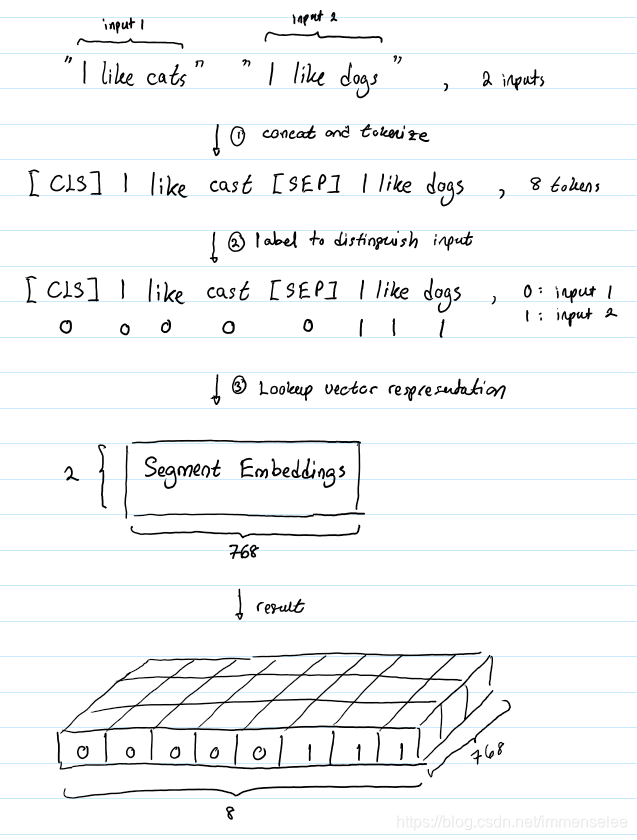 input 1 input 2
"I like cats" "I like dogs" , 2 inputs
① concat and tokenize
[CLS] I like cast [SEP] I like dogs , 8 tokens
② label to distinguish input
[CLS] I like cast [SEP] I like dogs , 0: input 1
0 0 0 0 0 1 1 1 1: input 2
③ Lookup vector respresentation
2 { Segment Embeddings
768
result
0 0 0 0 0 1 1 1
768
8
https://blog.csdn.net/immenselee